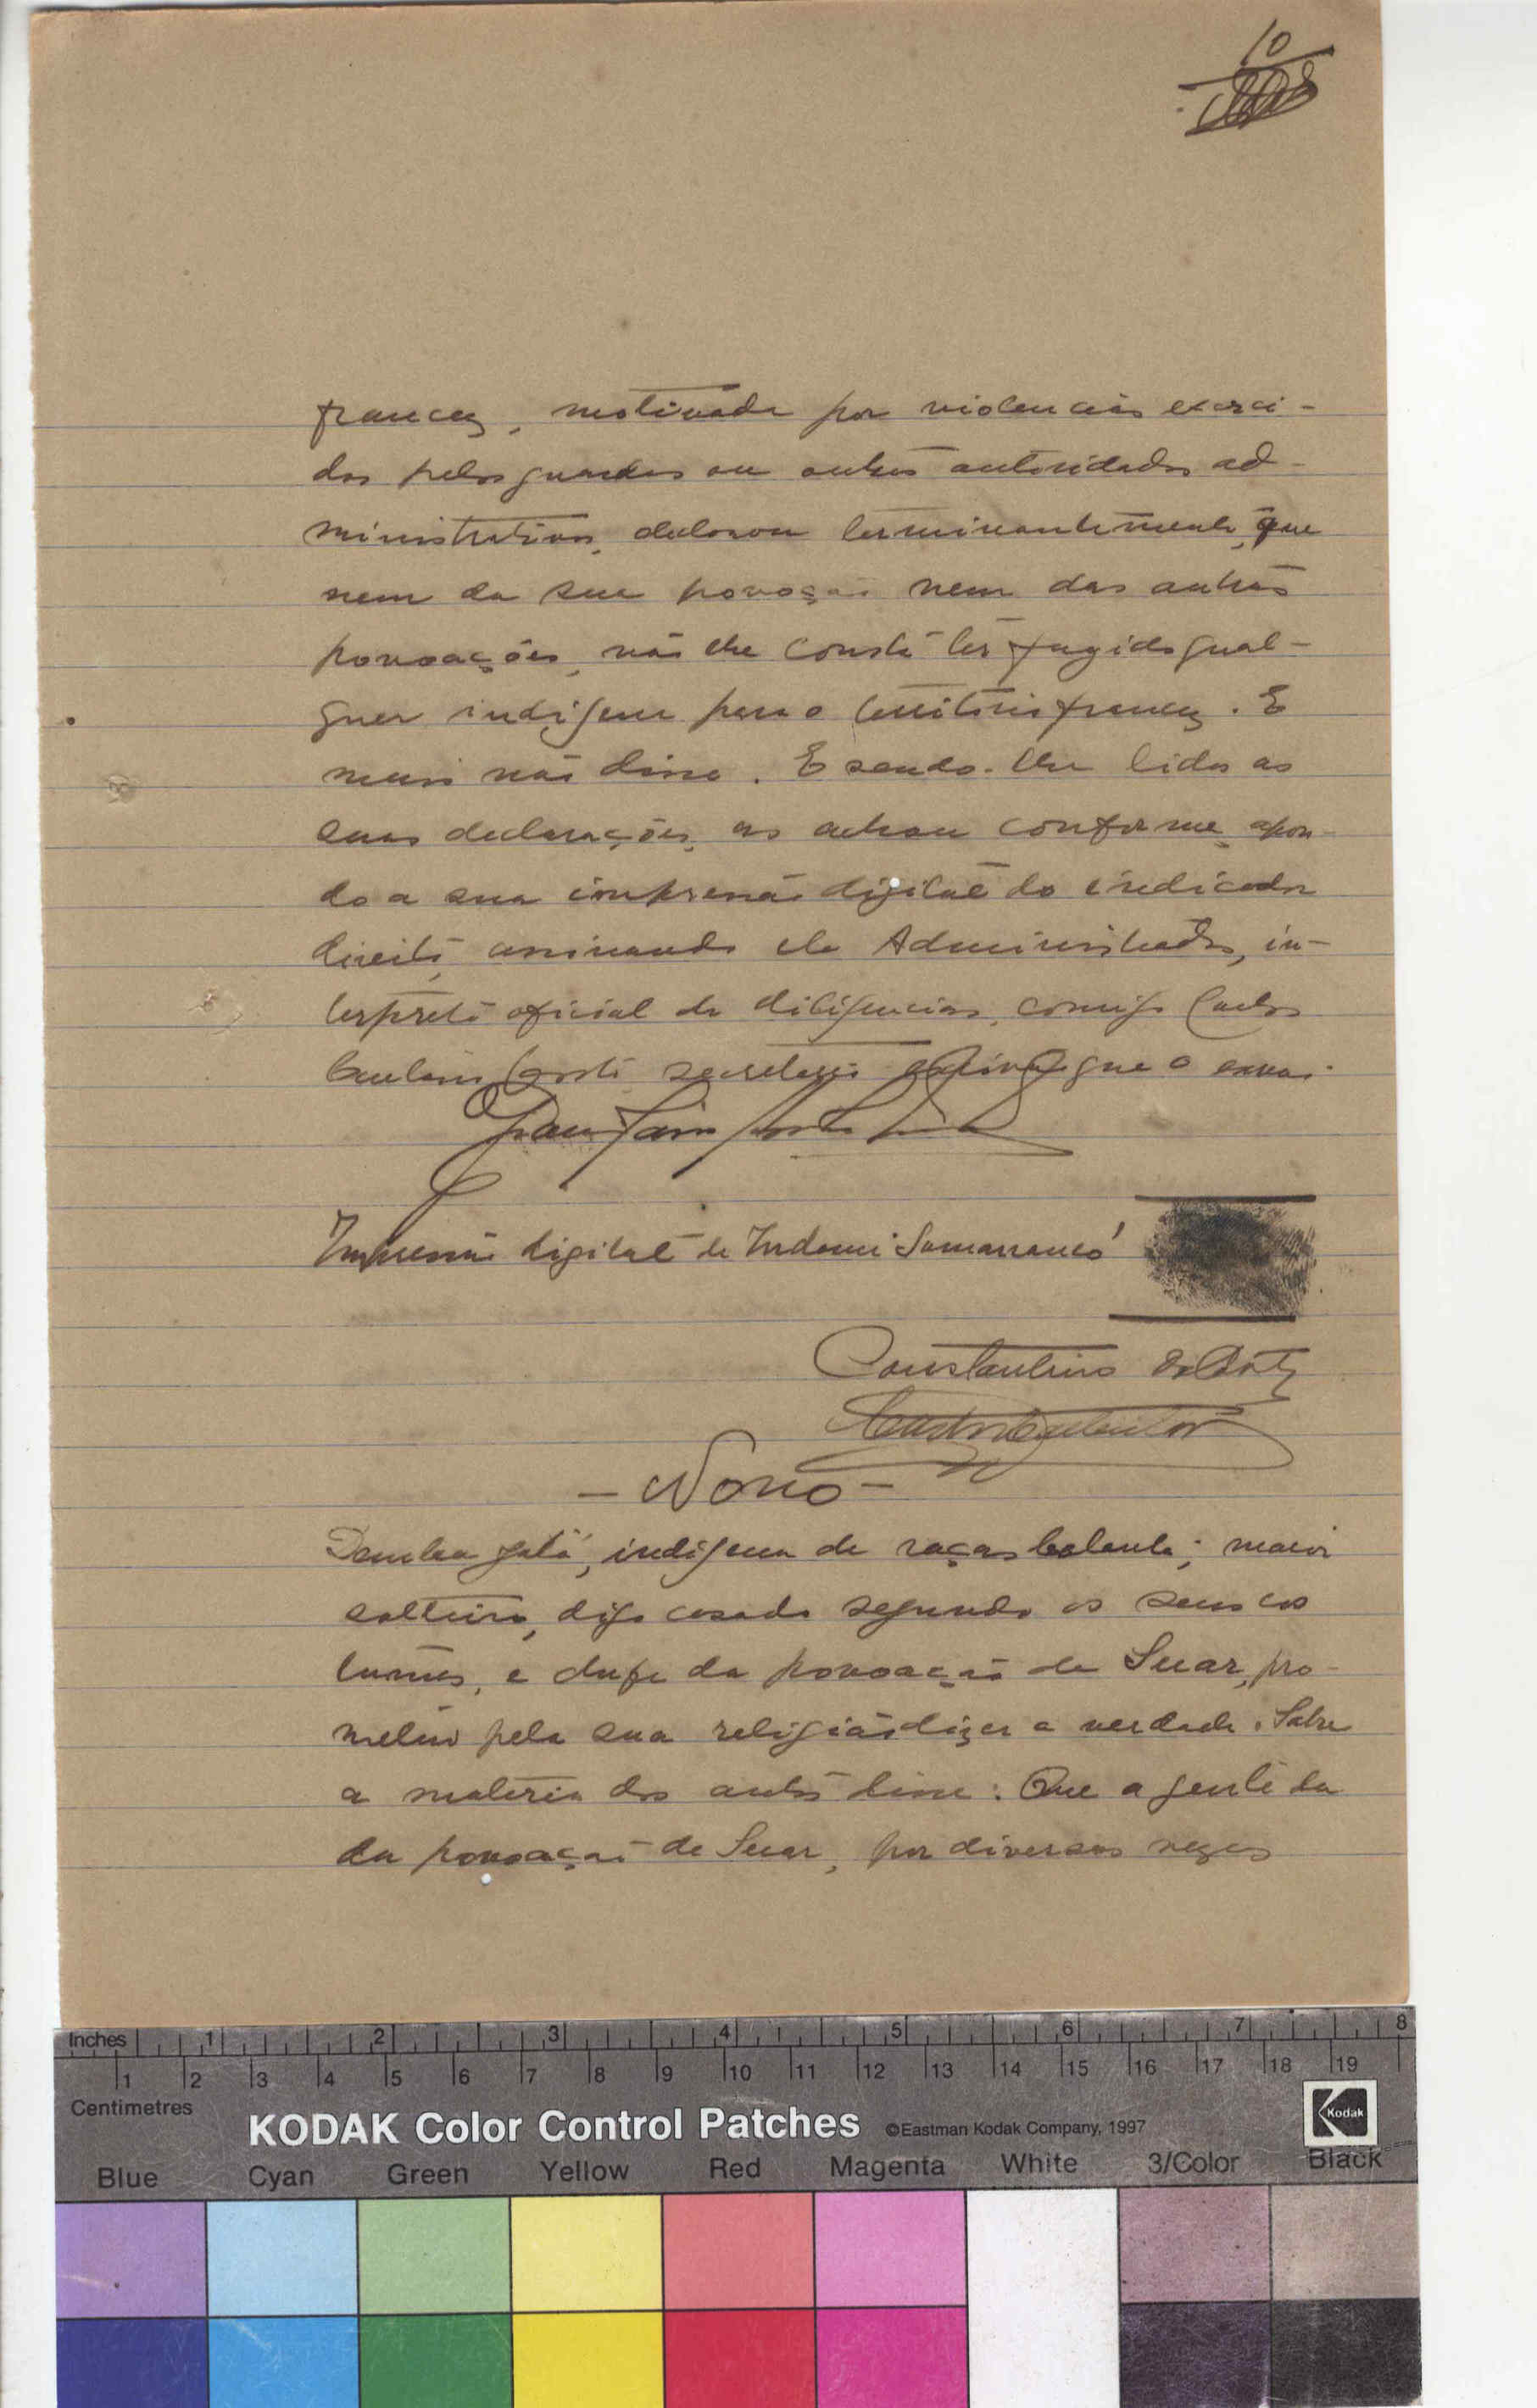 10
francez, motivada por violencias exerci-
das pelos guardas ou outras autoridades ad-
ministrativas, declarou terminantemente, que
nem da sua povoação nem das outras
povoações, não lhe consta ter fugido qual-
quer indigena para o territorio francez. E
mais não disse. E sendo-lhe lidas as
suas declarações, as achou conforme, apon-
do a sua impressão digital do indicador
direito, assinando ele Administrador, in-
terprete oficial de diligencias, comigo
secretario que o escrevi.
Impressão digital de Indami Samarancó
Constantino
- Nono -
Demba Jatá, indigena de raças balanta; maior
solteiro, digo casado segundo os seus cos
tumes, e chefe da povoação de Suar, pro-
meteu pela sua religião dizer a verdade. Sobre
a materia dos autos disse: Que a gente da
da povoação de Suar, por diversas vezes
Inches 1 2 3 4 5 6 7 8
1 2 3 4 5 6 7 8 9 10 11 12 13 14 15 16 17 18 19
Centimetres
KODAK Color Control Patches ©Eastman Kodak Company, 1997 Kodak
Blue Cyan Green Yellow Red Magenta White 3/Color Black